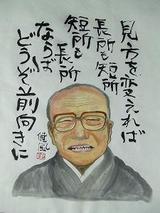 見方を変えれば
長所も短所
短所も長所
ならば
どうぞ前向きに